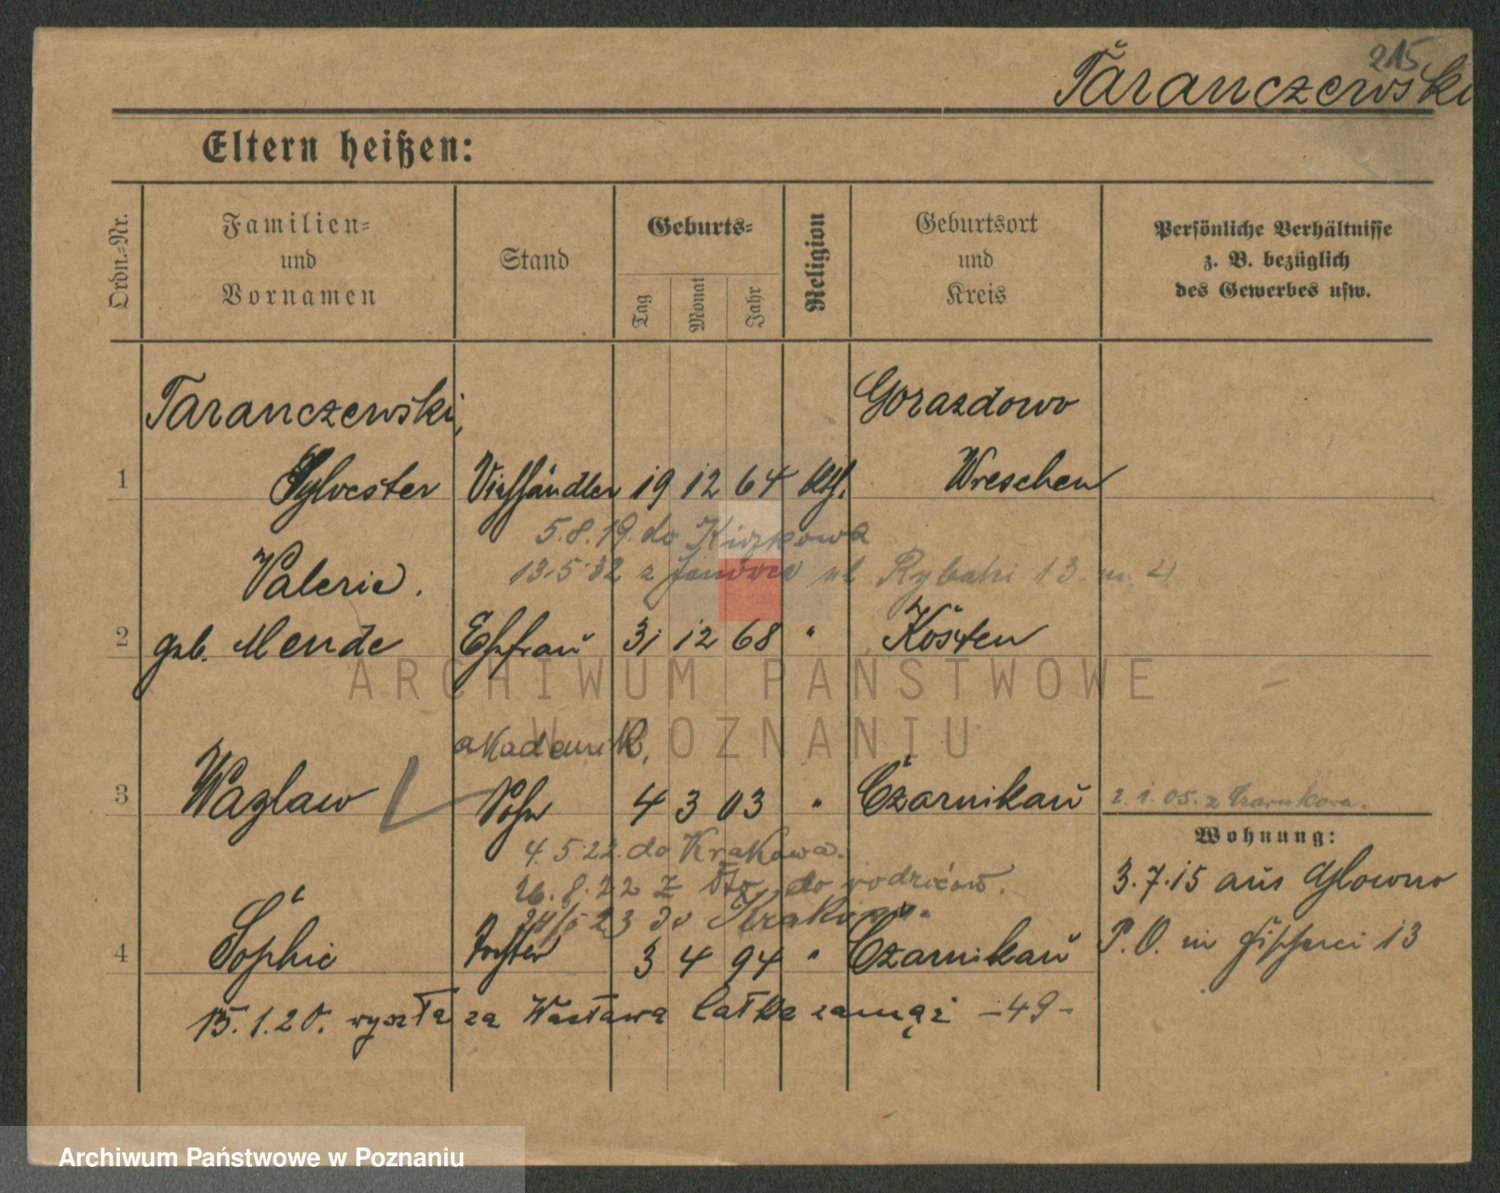 215
Taranczewski
Eltern heißen:
Ordn.-Nr.
Familien-
und
Vornamen
Stand
Geburts-
Tag
Monat
Jahr
Religion
Geburtsort
und
Kreis
Persönliche Verhältnisse
z. B. bezüglich
des Gewerbes usw.
Taranczewski, Gorazdowo
1 Sylvester Viehhändler 19 12 64 kth. Wreschen
5.8.19. do Kiszkowa
Valerie. 13.5.32 z Janowca ul Rybaki 13. m. 4
2 geb. Mende Ehefrau 31 12 68 " Kosten
ARCHIWUM PAŃSTWOWE
W POZNANIU
akademik,
3 Wazlaw Sohn 4 3 03 " Czarnikau 2.1.05. z Czarnkowa.
Wohnung:
4.5.22. do Krakowa.
26.8.22 z do rodziców. 3.7.15 aus Glowno
23 do Krakowa.
4 Sophie Tochter 3 4 94 " Czarnikau P. O. in Fischerei 13
15.1.20. wyszła za Wacława Łatka zamąż -49-
Archiwum Państwowe w Poznaniu